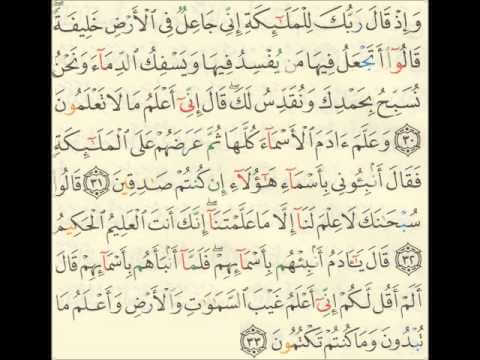 وَإِذْ قَالَ رَبُّكَ لِلْمَلَٰٓئِكَةِ إِنِّى جَاعِلٌ فِى ٱلْأَرْضِ خَلِيفَةً ۖ
قَالُوٓا۟ أَتَجْعَلُ فِيهَا مَن يُفْسِدُ فِيهَا وَيَسْفِكُ ٱلدِّمَآءَ وَنَحْنُ
نُسَبِّحُ بِحَمْدِكَ وَنُقَدِّسُ لَكَ ۖ قَالَ إِنِّىٓ أَعْلَمُ مَا لَا تَعْلَمُونَ
٣٠ وَعَلَّمَ ءَادَمَ ٱلْأَسْمَآءَ كُلَّهَا ثُمَّ عَرَضَهُمْ عَلَى ٱلْمَلَٰٓئِكَةِ
فَقَالَ أَنۢبِـُٔونِى بِأَسْمَآءِ هَٰٓؤُلَآءِ إِن كُنتُمْ صَٰدِقِينَ ٣١ قَالُوا۟
سُبْحَٰنَكَ لَا عِلْمَ لَنَآ إِلَّا مَا عَلَّمْتَنَآ ۖ إِنَّكَ أَنتَ ٱلْعَلِيمُ ٱلْحَكِيمُ
٣٢ قَالَ يَٰٓـَٔادَمُ أَنۢبِئْهُم بِأَسْمَآئِهِمْ ۖ فَلَمَّآ أَنۢبَأَهُم بِأَسْمَآئِهِمْ قَالَ
أَلَمْ أَقُل لَّكُمْ إِنِّىٓ أَعْلَمُ غَيْبَ ٱلسَّمَٰوَٰتِ وَٱلْأَرْضِ وَأَعْلَمُ مَا
تُبْدُونَ وَمَا كُنتُمْ تَكْتُمُونَ ٣٣